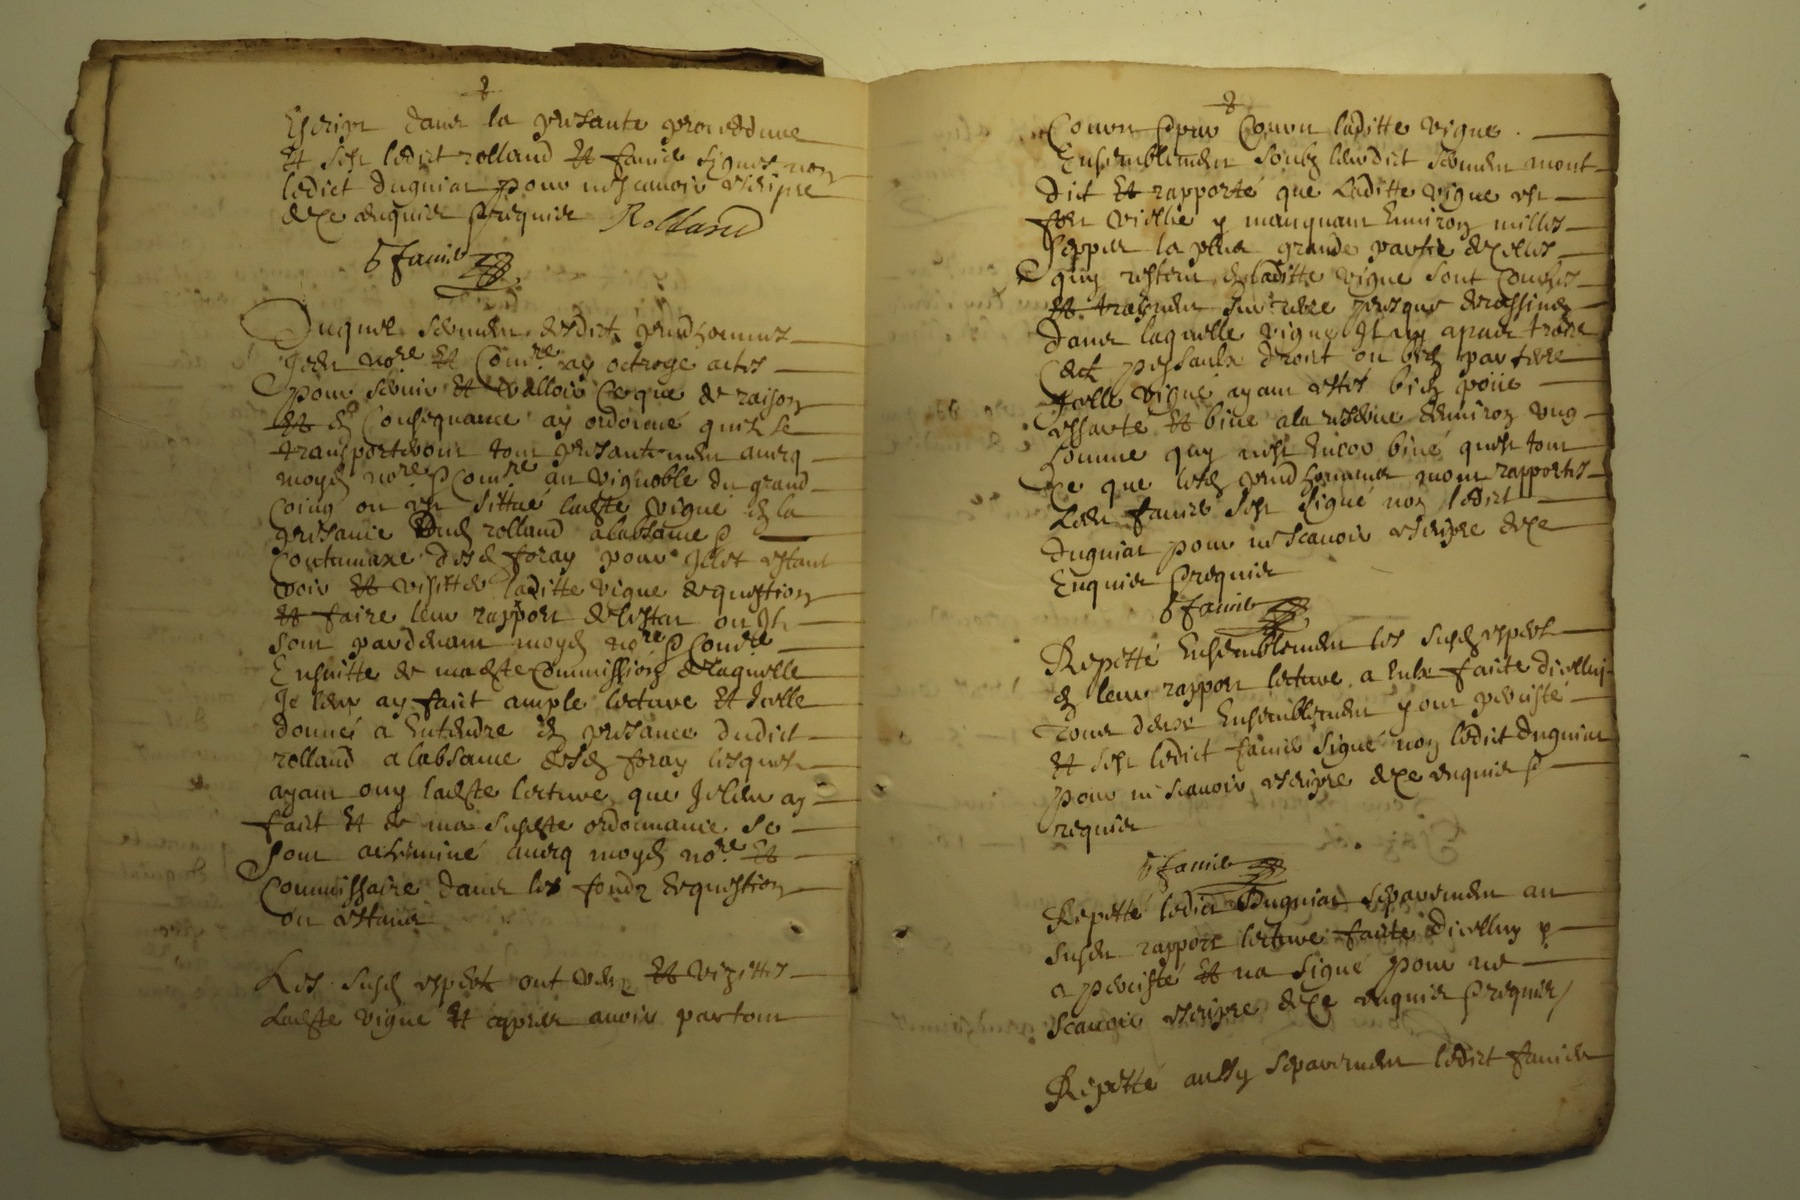 Escript dans la presante proceddure
Et sest ledict rolland Et famier signes non
ledict duguiat pour ne scauoir escripre
de ce enquier & requier Rolland
famier
Duquel serment desdictz preudhommes
Je dict nore Et Comre ay octroye actes
pour seruir Et valloir ce que de raison
Et en Consequance ay ordonné quilz se
transporteront tout presantement auecq
moyd nore & Comre au vignoble du grand
Coing ou est sittué ladte vigne en la
presance dud rolland a labsance &
Contumaxe dud foray pour Illec estant
voir Et visitter laditte vigne de question
Et faire leur rapport de lestat ou Il
sont pardeuant moyd nore & Comre
Ensuitte de madte Commission de laquelle
Je leur ay faict ample lecture Et Icelle
donné a Entendre En presance dudict
rolland a labsance dud foray lesquels
ayant ouy ladte lecture que Je leur ay
faict Et de ma susdte ordonnance se
sont acheminé auecq moyd nore Et
Commissaire dans les fondz de question
ou estans
Les susd expertz ont veu Et vizittes
Ladte vigne Et apres auoir partout
Couru & par Couru laditte vigne
Ensemblement soubz leurdict serment mont
dict Et rapporté que Laditte vigne est
fort vieille y manquant Enuiron milles
seppes la plus grande partie dicelles
quy restent En laditte vigne sont Couches
Et trainent sur terre presque derassines
dans laquelle vigne Il ny a
paissaulx droit ou bien par terre
Icelle vigne ayant estes bien
essarté Et biné a la reserue denuiron vng
homme quy nest Encor biné quest tout
Ce que lesd preudhommes mont rapportes
Led famier sest signé non ledict
duguiat pour ne scauoir escripre de ce
Enquier & requier
famier
Repetté Ensemblement les susd expertz
En leur rapport lecture a Eulx faicte dicelluy
tous deux Ensemblement y ont percisté
Et sest ledict famier signé non ledict duguiat
pour ne scauoir escripre de ce enquier &
requier
famier
Repetté ledict duguiat separement au
susdt rapport lecture faicte dicelluy y
a percisté Et na signé pour ne
scauoir escripre de ce enquier & requier
Repetté aussy separement ledict famier